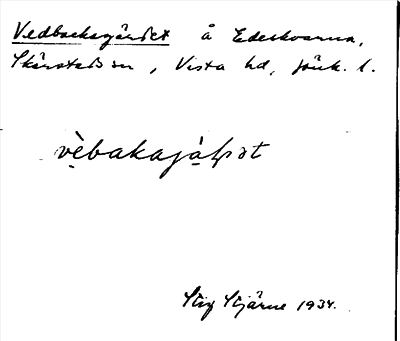 Vedbacksgärdet å Edeskvarna,
Skärstads sn, Vista hd, Jönk. l.
vèbakajàḷṣət
Stig Stjärne 1934.